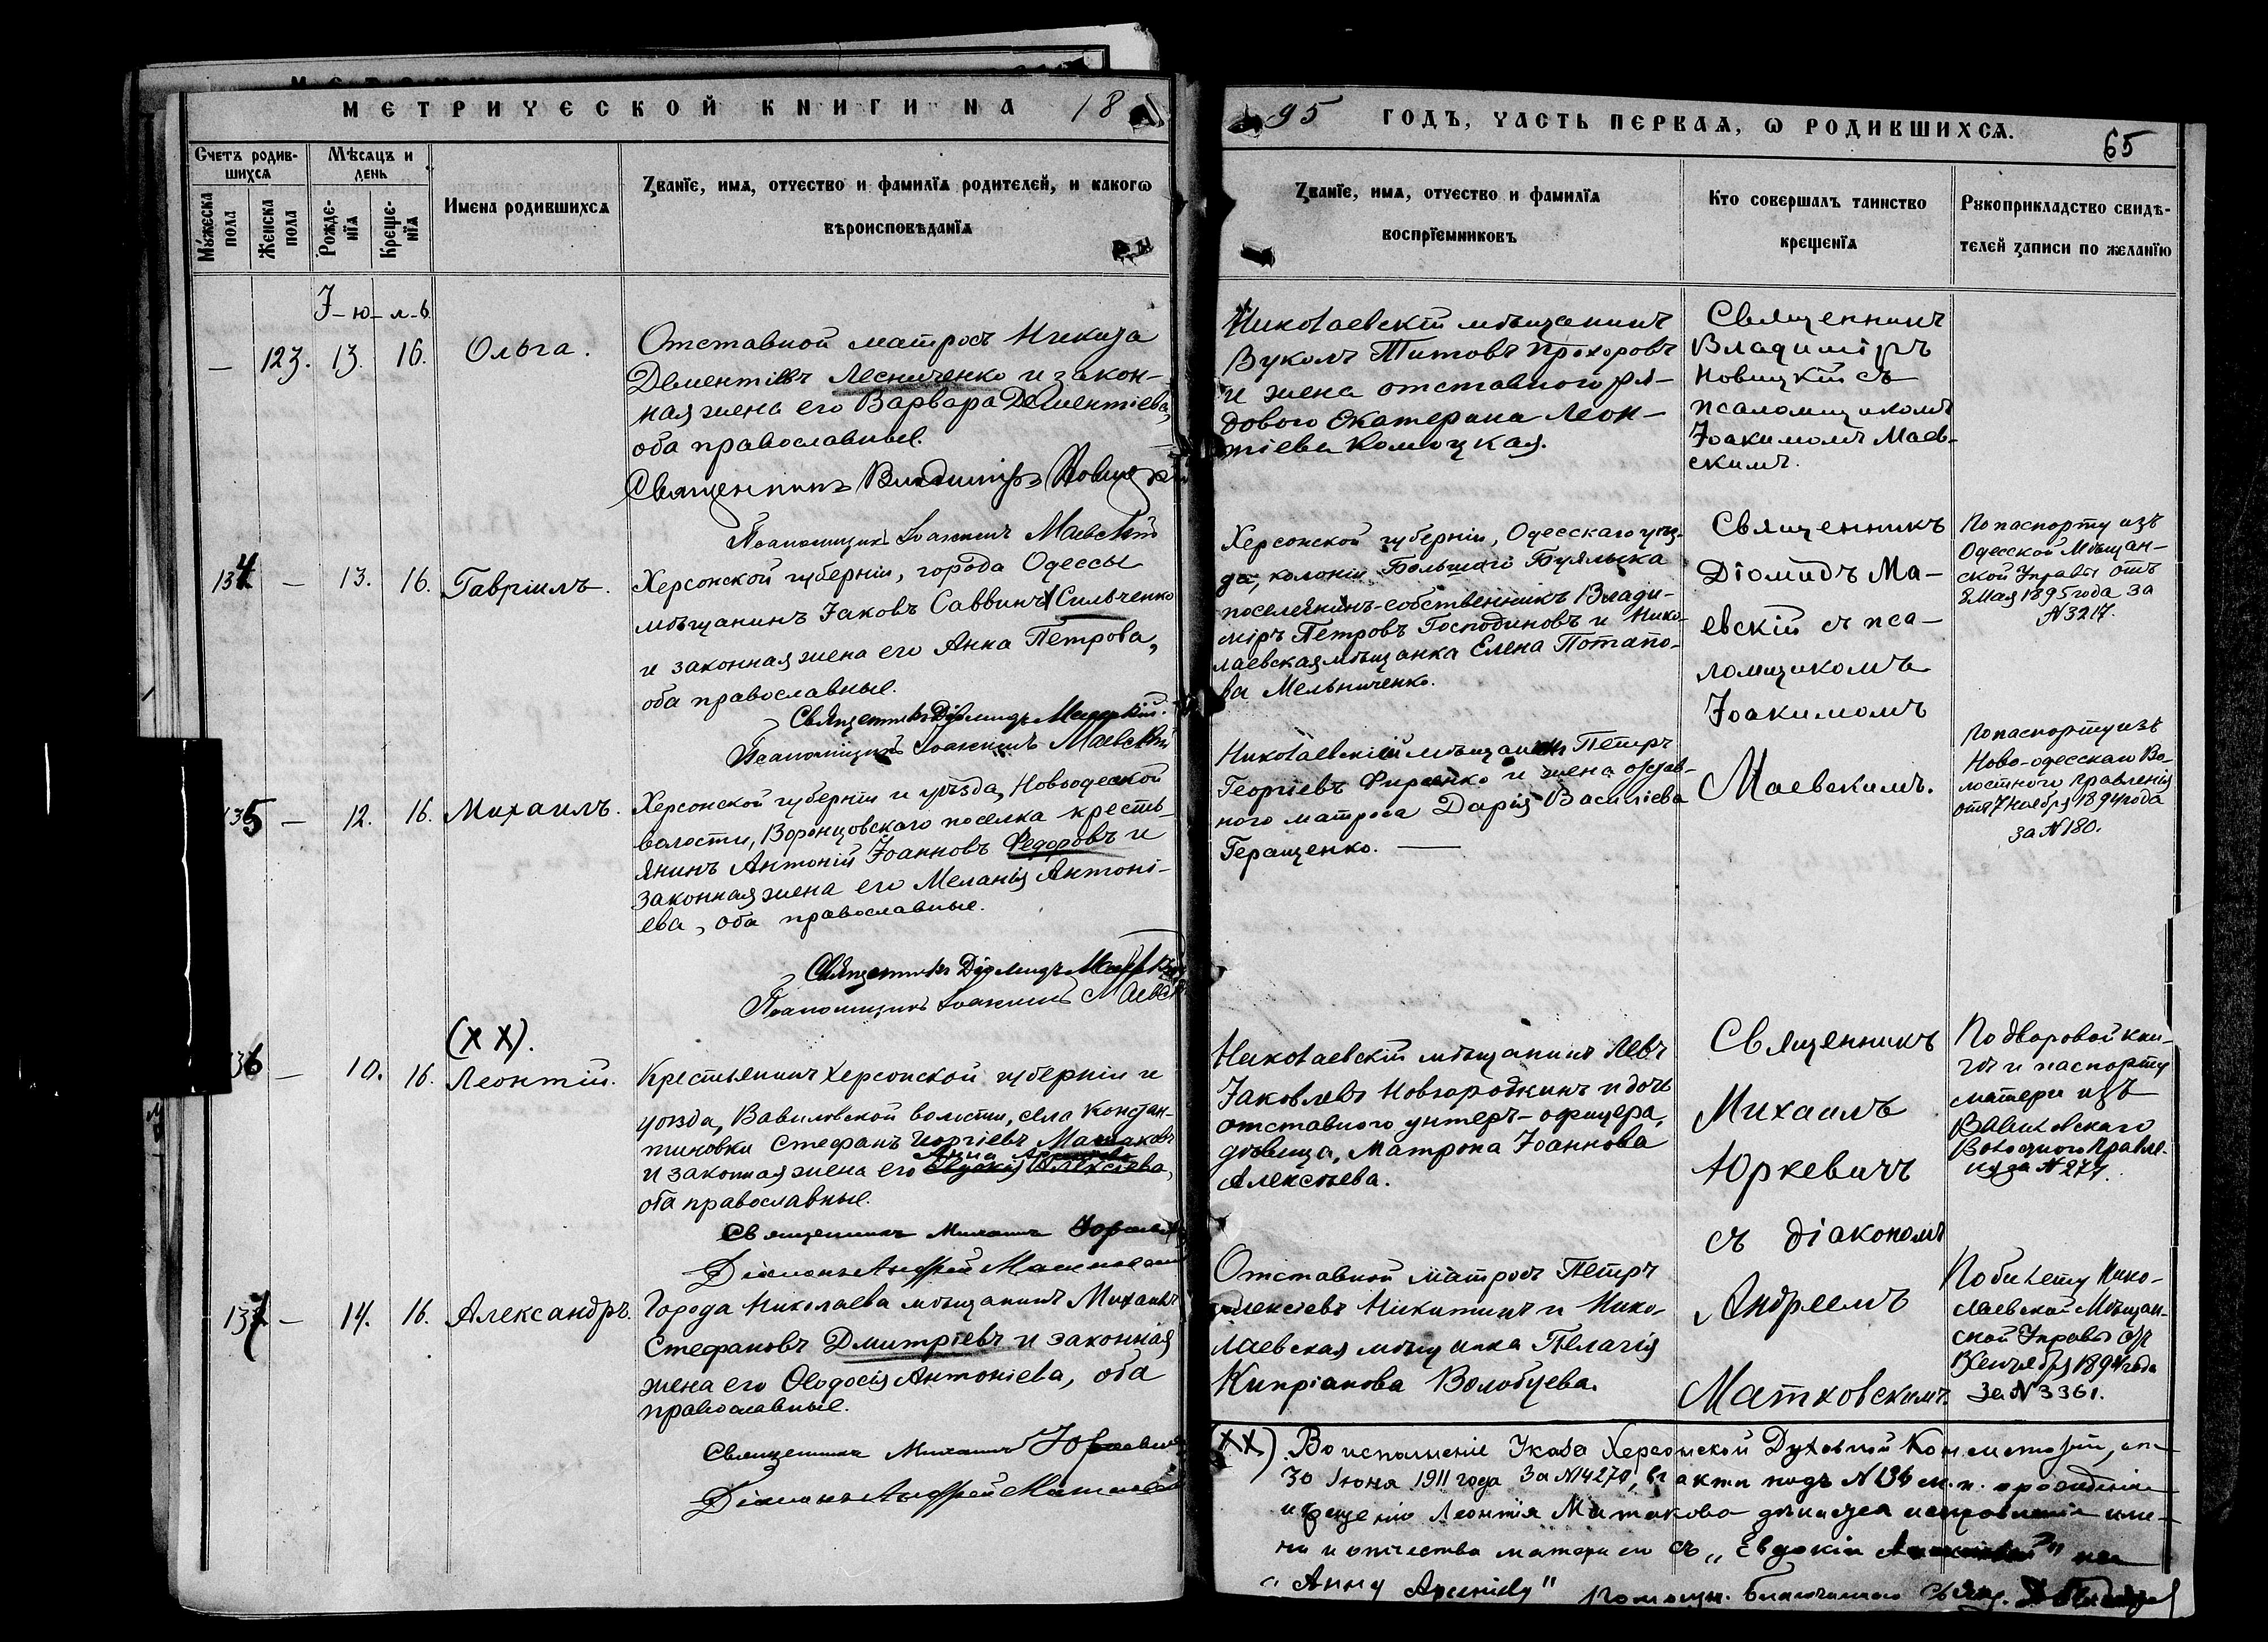 МЕТРИЧЕСКОЙ КНИГИ НА 18
95 ГОДЪ, ЧАСТЬ ПЕРВАЯ, Ѡ РОДИВШИХСѦ.
65
Счетъ родив-
шихсѧ
Мѣсѧцъ и
день
Мужеска
пола
Женска
пола
Рожде-
нїѧ
Креще-
нїѧ
Имена родившихсѧ
Званїе, имѧ, отчество и фамилїѧ родителей, и какогѡ
вѣроисповѣданїѧ
Званїе, имѧ, отчество и фамилїѧ
воспрїемниковъ
Кто совершалъ таинство
крещенїѧ
Рукоприкладство свидѣ-
телей записи по желанїю
І-ю-л-ь
— 123. 13. 16. Ольга.
Отставной матросъ Никита
Дементіевъ Лесниченко и закон-
ная жена его Варвара Дементіева,
оба православные.
Священникъ Владиміръ Новицкій
Псаломщикъ Іоакимъ Маевскій
Николаевскій мѣщанинъ
Вуколъ Титовъ Прохоровъ
и жена отставного ря-
дового Екатерина Леон-
тіева Комоцкая.
Священникъ
Владиміръ
Новицкій съ
псаломщикомъ
Іоакимомъ Маев-
скимъ.
134 — 13. 16. Гавріилъ.
Херсонской губерніи, города Одессы
мѣщанинъ Іаковъ Саввинъ Сильченко
и законная жена его Анна Петрова,
оба православные.
Священникъ Діомидъ Маевскій.
Псаломщикъ Іоакимъ Маевскій
Херсонской губерніи, Одесскаго уѣз-
да, колоніи Большого Буялыка
поселянинъ-собственникъ Влади-
міръ Петровъ Господиновъ и Нико-
лаевская мѣщанка Елена Потапо-
ва Мельниченко.
Священникъ
Діомидъ Ма-
евскій съ пса-
ломщикомъ
Іоакимомъ
Маевскимъ.
По паспорту изъ
Одесской Мѣщан-
ской Управы отъ
8 Мая 1895 года за
№ 3217.
135 — 12. 16. Михаилъ.
Херсонской губерніи и уѣзда, Новоодесской
волости, Воронцовскаго поселка кресть-
янинъ Антоній Іоанновъ Федоровъ и
законная жена его Меланія Антоні-
ева, оба православные.
Священникъ Діомидъ Маевскій
Псаломщикъ Іоакимъ Маевскій
Николаевскій мѣщанинъ Петръ
Георгіевъ Фирсенко и жена отстав-
ного матроса Дарія Василіева
Геращенко.
По паспорту изъ
Ново-одесскаго Во-
лостного Правленія
отъ 7 Ноября 1894 года
за № 180.
(XX).
136 — 10. 16. Леонтій.
Крестьянинъ Херсонской губерніи и
уѣзда, Вавиловской волости, села Констан-
тиновки Стефанъ Георгіевъ Матаковъ
Анна Арсеніева
и законная жена его Евдокія Алексіева,
оба православные.
Священникъ Михаилъ Юркевичъ
Діаконъ Андрей Матковскій
Николаевскій мѣщанинъ Левъ
Іаковлевъ Новгородкинъ и дочь
отставного унтеръ-офицера,
дѣвица, Матрона Іоаннова
Алексѣева.
Священникъ
Михаилъ
Юркевичъ
съ діакономъ
Андреемъ
Матковскимъ.
По дворовой кни-
гѣ и паспорту
матери изъ
Вавиловскаго
Волостного Правле-
нія за № 277.
137 — 14. 16. Александръ.
Города Николаева мѣщанинъ Михаилъ
Стефановъ Дмитріевъ и законная
жена его Ѳеодосія Антоніева, оба
православные.
Священникъ Михаилъ Юркевичъ
Діаконъ Андрей Матковскій
Отставной матросъ Петръ
Алексіевъ Никитинъ и Нико-
лаевская мѣщанка Пелагія
Кипріанова Волобуева.
По билету Нико-
лаевской Мѣщан-
ской Управы отъ
Сентября 1894 года
за № 3361.
XX) Во исполненіе Указа Херсонской Духовной Консисторіи, отъ
30 Іюня 1911 года за № 14270, въ актѣ подъ № 136 м.п. о рожденіи
и крещеніи Леонтія Матакова дѣлается исправленіе име-
ни и отчества матери его съ „Евдокіи Алексіевой" на
„Анну Арсеніеву" Помощн. Благочиннаго Свящ.